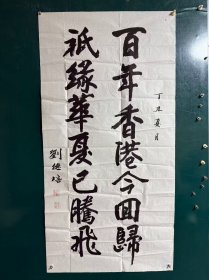 丁丑夏月
百年香港今回歸
祇緣華夏已騰飛
劉